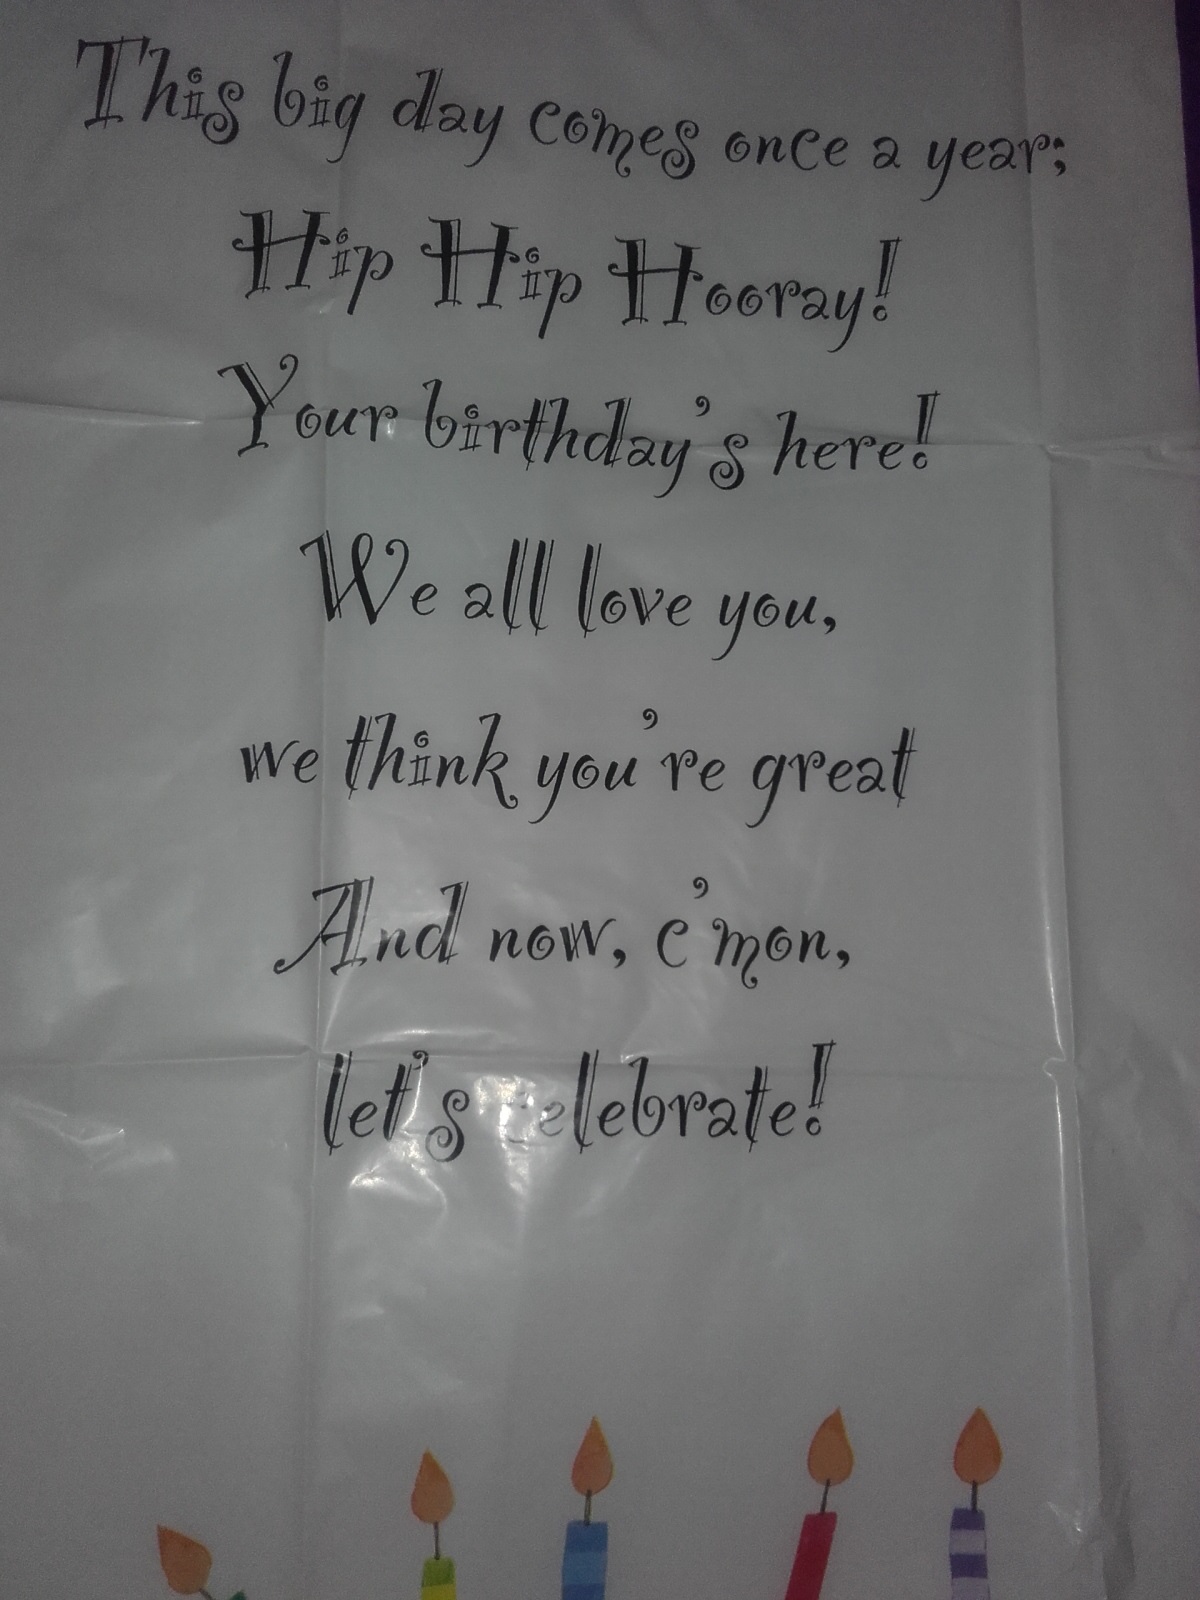 This big day comes once a year;
Hip Hip Hooray!
Your birthday's here!
We all love you,
we think you're great
And now, c'mon,
let's celebrate!